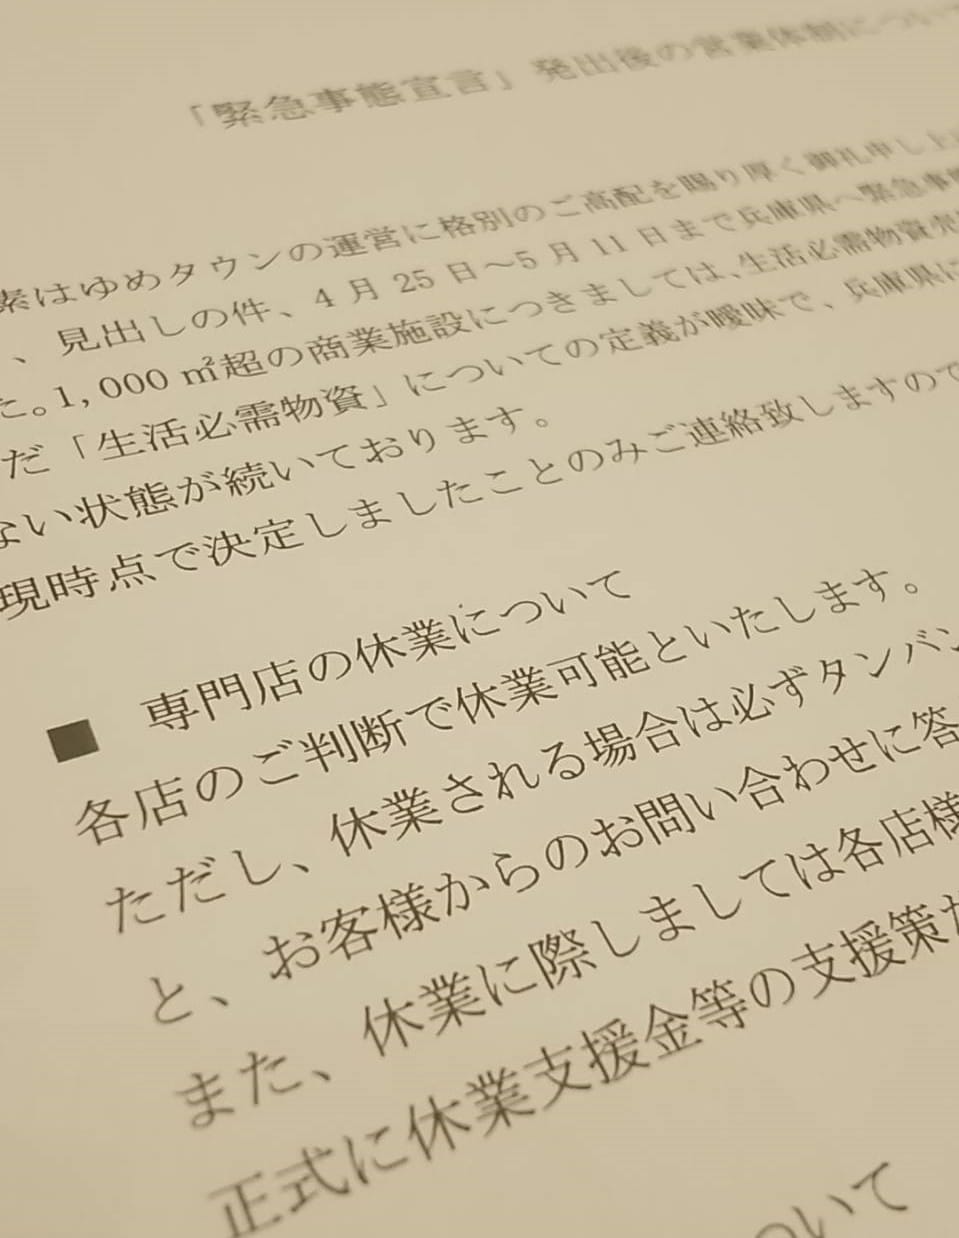 「緊急事態宣言」発出後の営業体制について
素はゆめタウンの運営に格別のご高配を賜り厚く御礼申し上
、見出しの件、4 月 25 日～5 月 11 日まで兵庫県へ緊急事態
た。1,000 ㎡超の商業施設につきましては、生活必需物資売
だ「生活必需物資」についての定義が曖昧で、兵庫県に
ない状態が続いております。
現時点で決定しましたことのみご連絡致しますので
■ 専門店の休業について
各店のご判断で休業可能といたします。
ただし、休業される場合は必ずタンバン
と、お客様からのお問い合わせに答
また、休業に際しましては各店様
正式に休業支援金等の支援策が
ついて